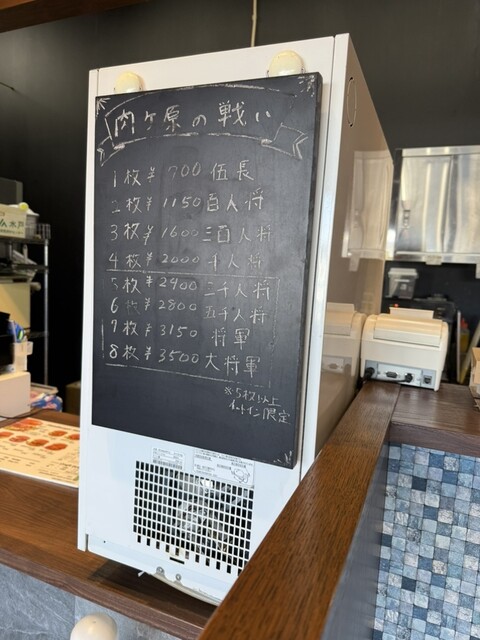 肉ケ原の戦い
1枚 ¥ 700 伍長
2枚 ¥ 1150 百人将
3枚 ¥ 1600 三百人将
4枚 ¥ 2000 千人将
5枚 ¥ 2400 二千人将
6枚 ¥ 2800 五千人将
7枚 ¥ 3150 将軍
8枚 ¥ 3500 大将軍
※5枚以上
イートイン限定